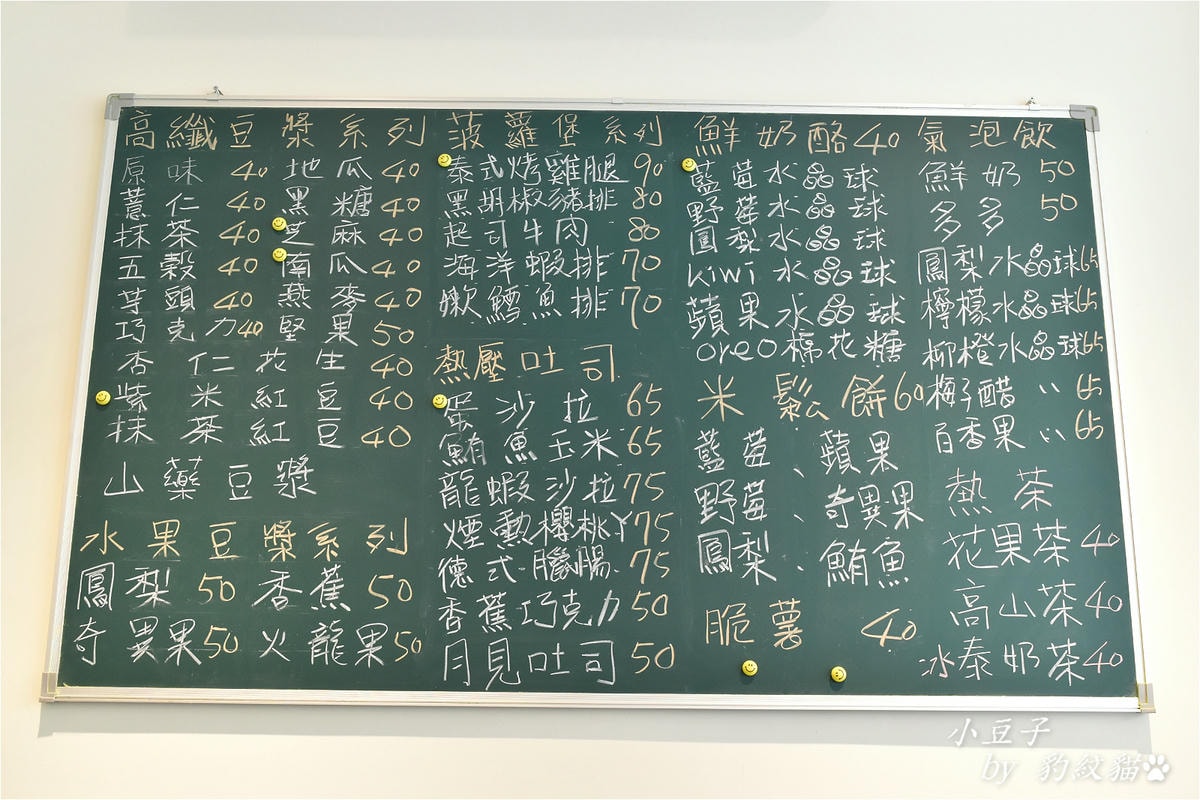 高纖豆漿系列
原味 40 地瓜 40
薏仁 40 黑糖 40
抹茶 40 芝麻 40
五穀 40 南瓜 40
芋頭 40 燕麥 40
巧克力 40 堅果 50
杏仁花生 40
紫米紅豆 40
抹茶紅豆 40
山藥豆漿
水果豆漿系列
鳳梨 50 香蕉 50
奇異果 50 火龍果 50
菠蘿堡系列
泰式烤雞腿 90
黑胡椒豬排 80
起司牛肉 80
海洋蝦排 70
嫩鱈魚排 70
熱壓吐司
蛋沙拉 65
鮪魚玉米 65
龍蝦沙拉 75
煙勳櫻桃丫 75
德式臘腸 75
香蕉巧克力 50
月見吐司 50
鮮奶酪 40
藍莓水晶球
野莓水晶球
鳳梨水晶球
kiwi水晶球
蘋果水晶球
oreo棉花糖
米鬆餅 60
藍莓、蘋果
野莓、奇異果
鳳梨、鮪魚
脆薯 40
氣泡飲
鮮奶 50
多多 50
鳳梨水晶球 65
檸檬水晶球 65
柳橙水晶球 65
梅子醋 〃 65
百香果 〃 65
熱茶
花果茶 40
高山茶 40
冰泰奶茶 40
小豆子
by 豹紋貓